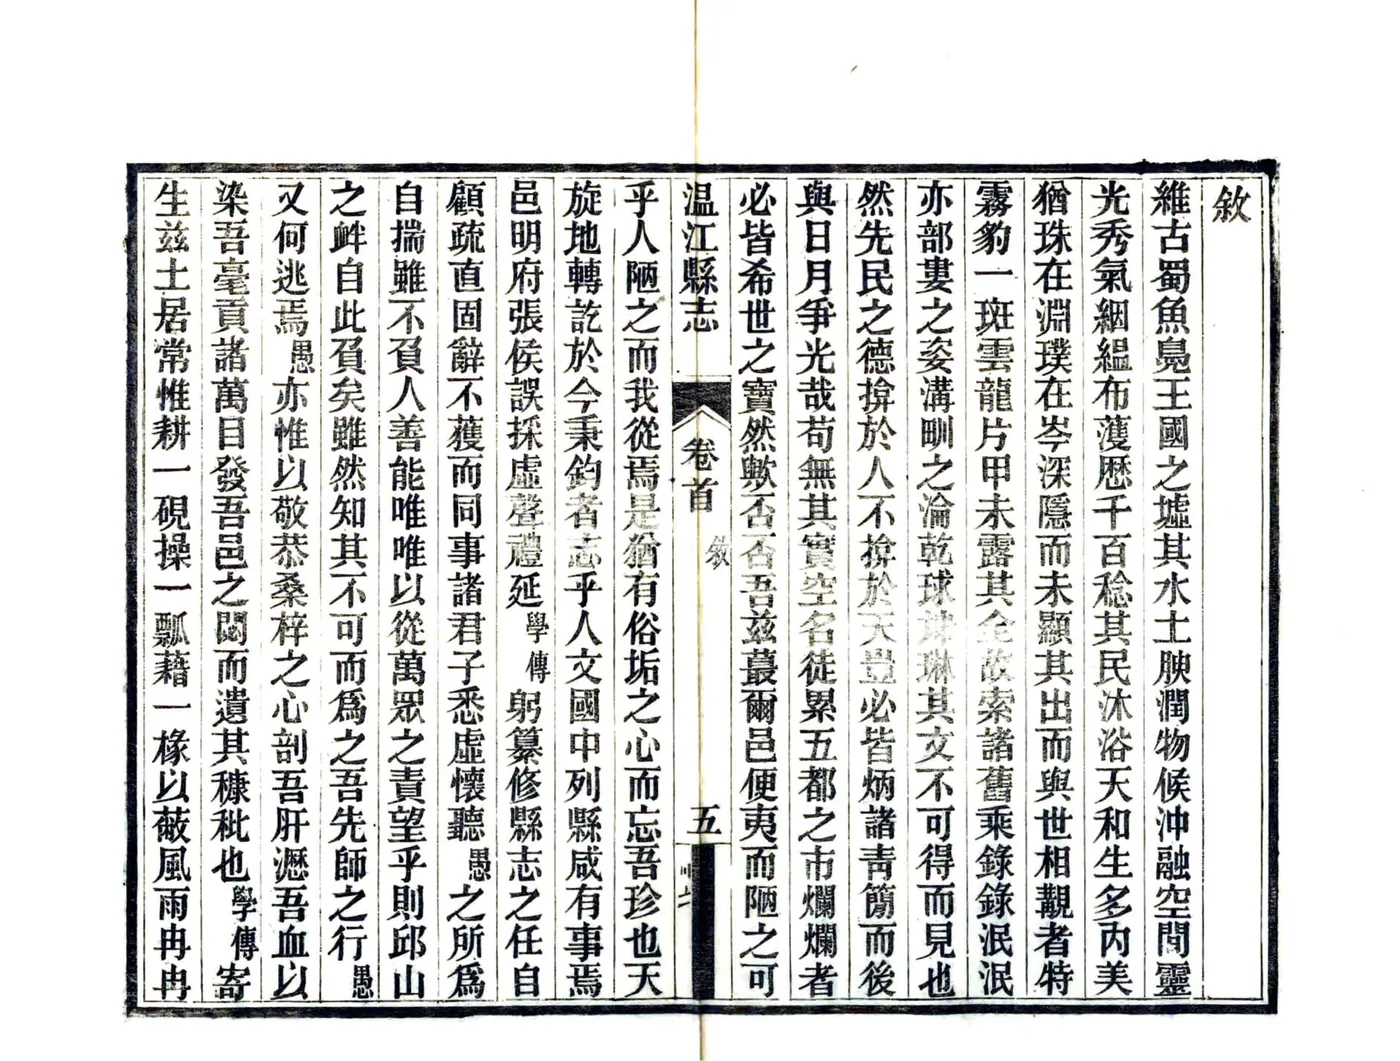 敘
維古蜀魚鳧王國之墟其水土腴潤物候沖融空間靈
光秀氣絪縕布濩歷千百稔其民沐浴天和生多內美
猶珠在淵璞在岑深隱而未顯其出而與世相觀者特
霧豹一斑雲龍片甲未露其全故索諸舊乘錄錄泯泯
亦部婁之姿溝甽之淪乾球琳其文不可得而見也
然先民之德揜於人不揜於天豈必皆炳諸靑簡而後
與日月爭光哉苟無其實空名徒累五都之市爛爛者
必皆希世之寶然歟否否吾兹蕞爾邑便夷而陋之可
温江縣志
卷首
敘
五
乎人陋之而我從焉是猶有俗垢之心而忘吾珍也天
旋地轉訖於今秉鈞者志乎人文國中列縣咸有事焉
邑明府張侯誤採虛聲禮延學傳躬纂修縣志之任自
顧疏直固辭不獲而同事諸君子悉虛懷聽愚之所爲
自揣雖不負人善能唯唯以從萬眾之責望乎則邱山
之衅自此負矣雖然知其不可而爲之吾先師之行愚
又何逃焉愚亦惟以敬恭桑梓之心剖吾肝瀝吾血以
染吾毫貢諸萬目發吾邑之閟而遺其穅秕也學傳寄
生兹土居常惟耕一硯操一瓢藉一椽以蔽風雨冉冉